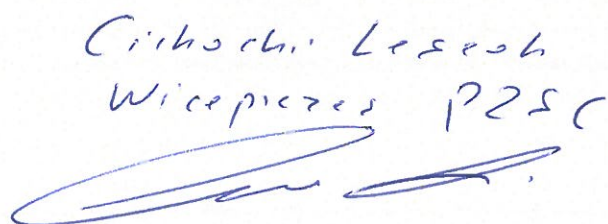 Cichocki Leszek
Wiceprezes PZSC